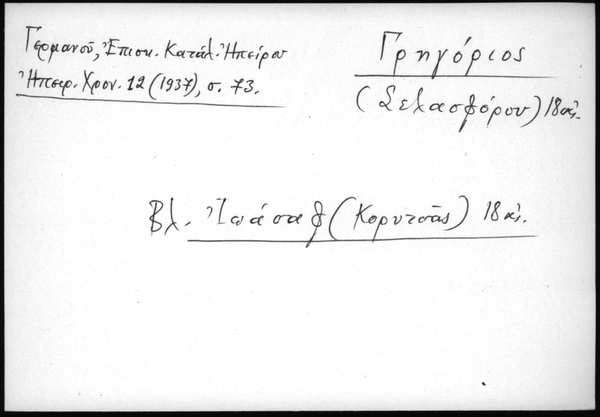 Γερμανοῦ, Ἐπισκ. Κατάλ. Ἠπείρου
Ἠπειρ. Χρον. 12 (1937), σ. 73.
Γρηγόριος
(Σελασφόρου) 18 αἰ.
Βλ. Ἰωάσαφ (Κορυτσᾶς) 18 αἰ.